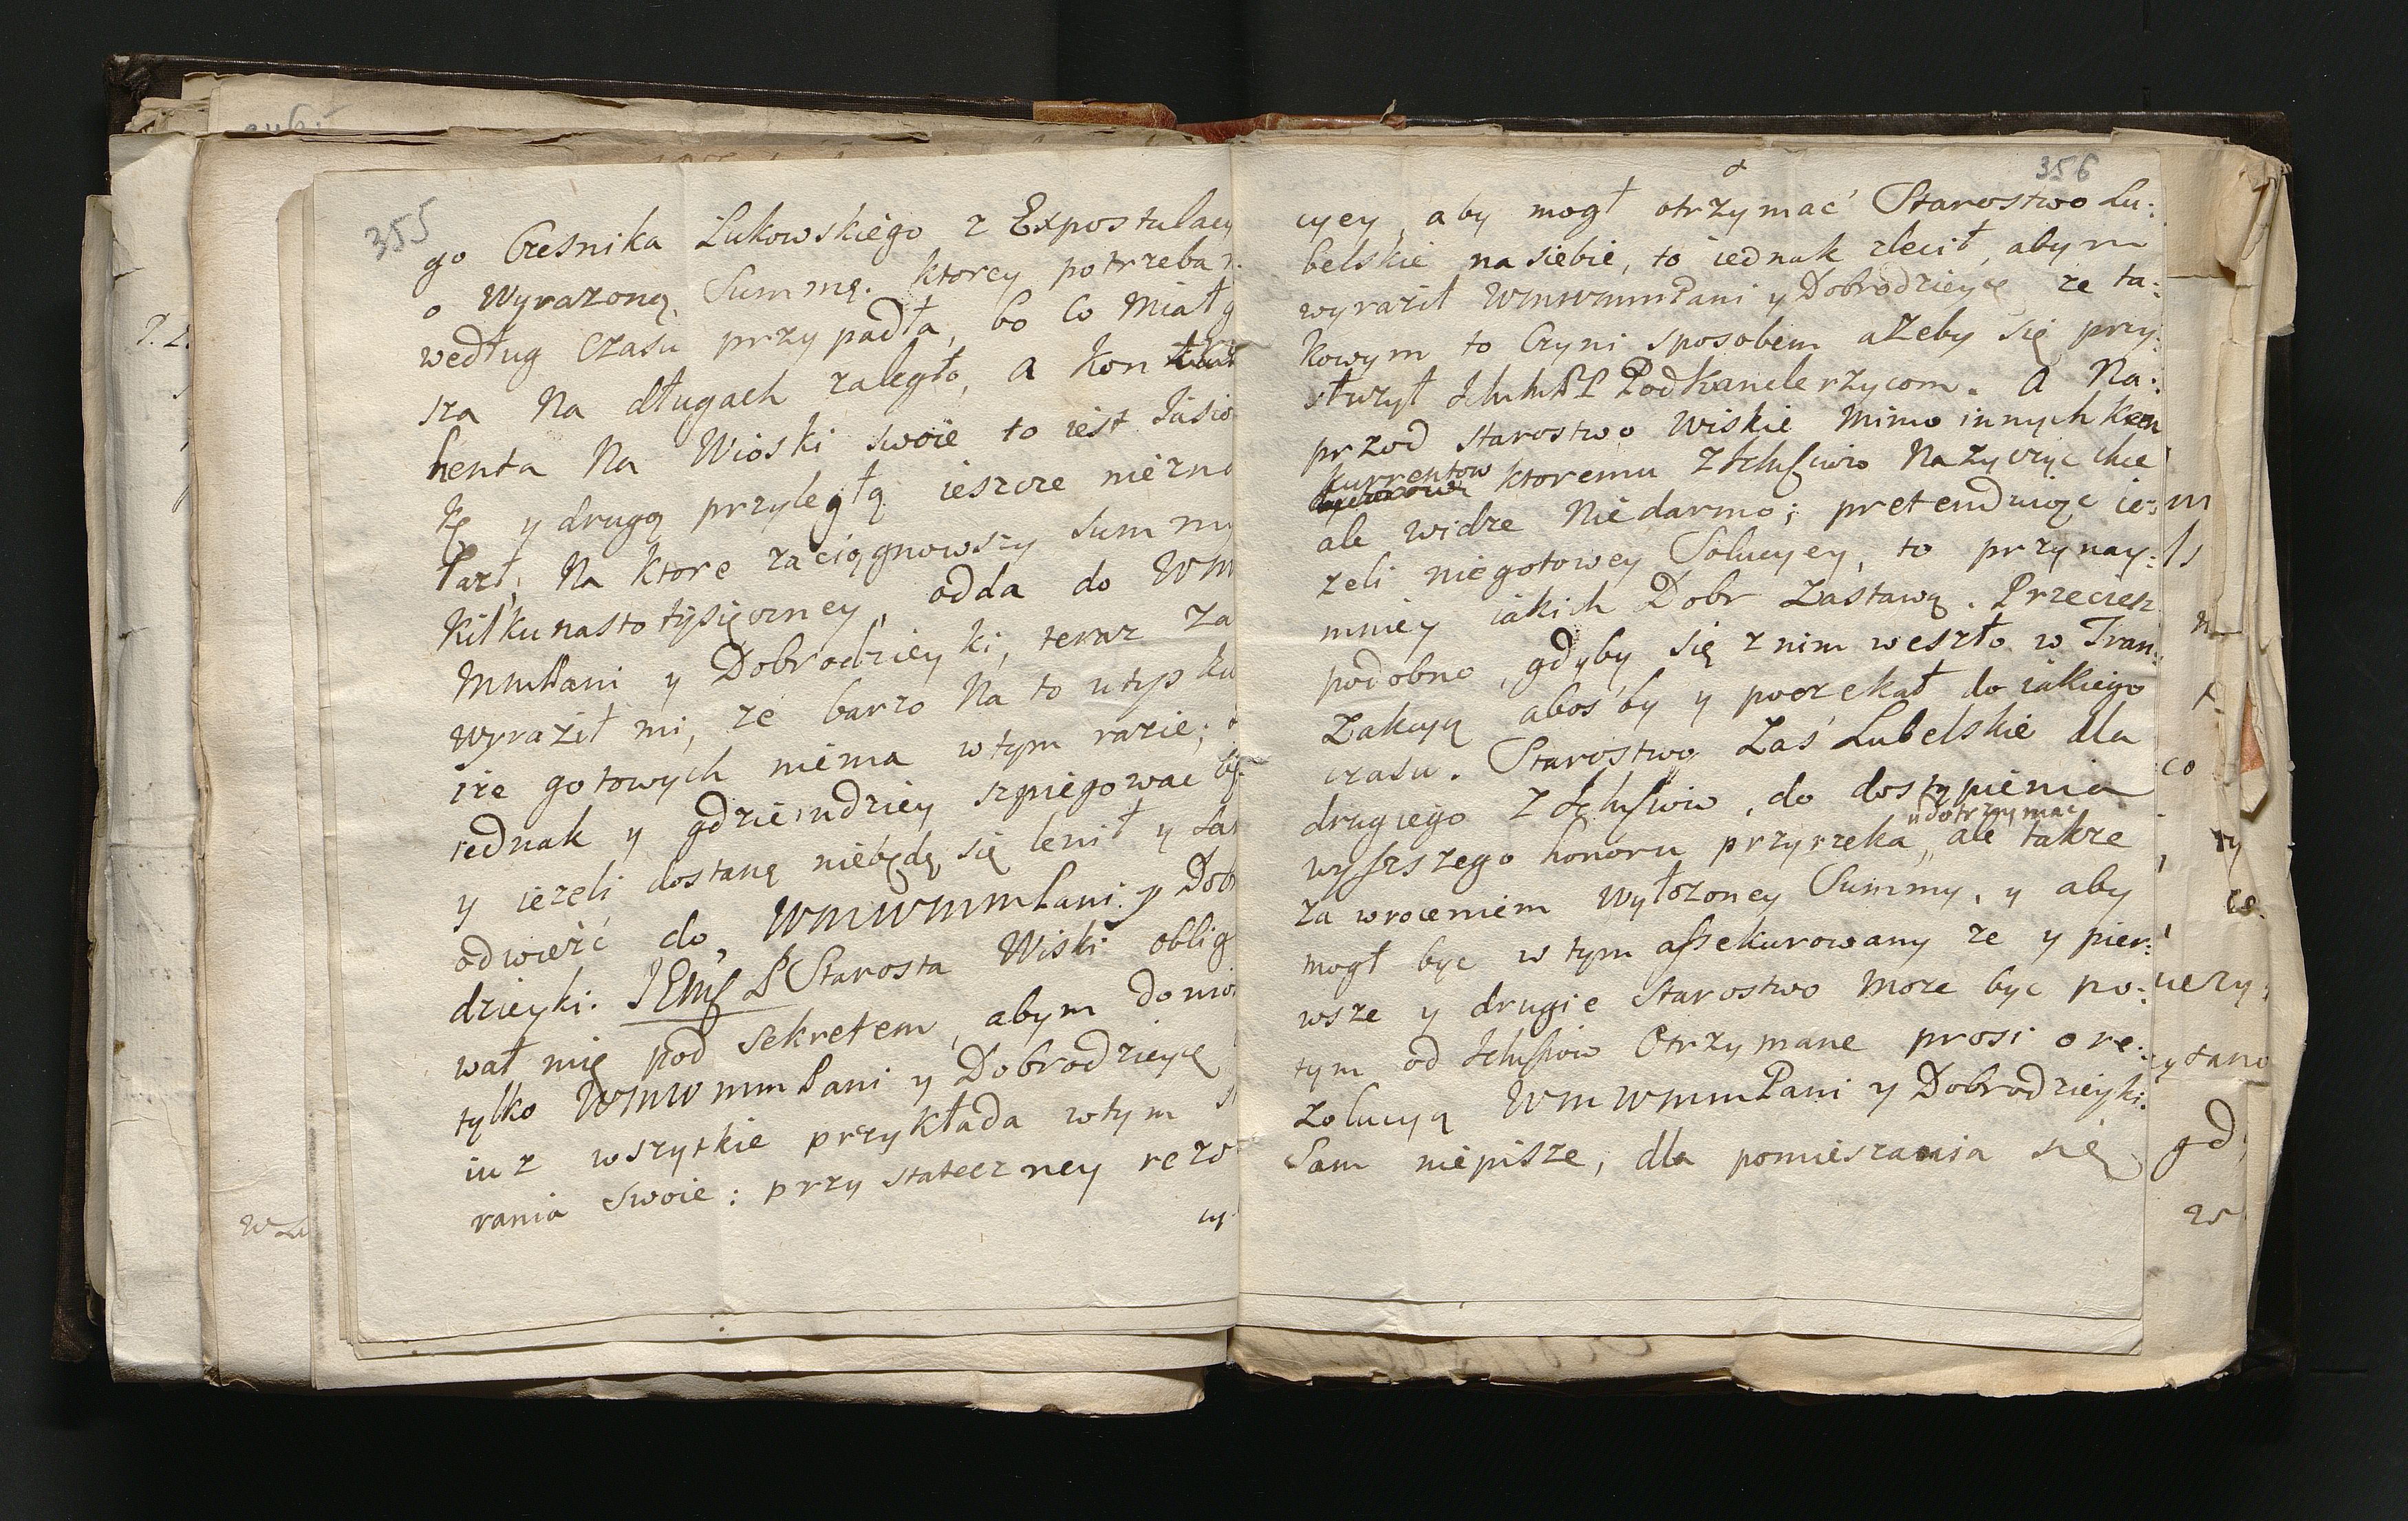 355
go Cześnika Łukowskiego z Expostulacy
o Wyrazoną Summę. ktorey potrzeba
według Czasu przypadła, bo Co Miał g
sza Na długach zaległo, a kon
henta Na Wioski swoie to iest Jasio
kę y drugą przyległą ieszcze niezna
lazł, Na ktore zaciągnowszy summy
kilkunastotysięczney, odda do WM
MmPani y Dobrodzieyki, teraz Za
wyraził mi, ze barzo Na to utysku
ize gotowych niema wtym razie;
iednak y gdzieindziey szpiegowac bę
y iezeli dostanę niebędę się lenił y sam
odwieźć do WMWMmPani y Dob
dzieyki. JEMs P Starosta Wiski oblig
wał mię pod sekretem, abym donio
tylko WMWMmPani y Dobrodzieyce
iuz wszytkie przykłada wtym st
rania swoie: przy stateczney rezo
cy
356
cyey, aby mogł otrzymać Starostwo Lu:
belskie na siebie, to iednak zlecił, abym
wyraził WMWMmPani y Dobrodzieyce ze ta:
kowym to Czyni sposobem azeby się przy:
słuzył PP Podkanclerzycom. A Na:
przod starostwo Wiskie Mimo innych kon
kurrentow ktoremu z Nazyczyc chce
ale widze Niedarmo; pretenduiąc ie:
zeli niegotowey Solucyey, to przynay:
mniey iakich Dobr Zastawą. Przeciez
podobno, gdyby się znim weszło w Tran:
zakcyą aboś by y poczekał do iakiego
czasu. Starostwo Zaś Lubelskie dla
drugiego z do dostąpienia
udotrzymac
wyszszego honoru przyrzeka, ale takze
za wroceniem wyłozoney Summy, y aby
mogł byc wtym assekurowany ze y pier:
wsze y drugie Starostwo moze byc po:
tym od Otrzymane prosi o re:
zolucyą WMWMmPani y Dobrodzieyki.
Sam niepisze, dla pomieszania się
m
ls
n
co
ry
ce.
uczy
ytano
gd
w